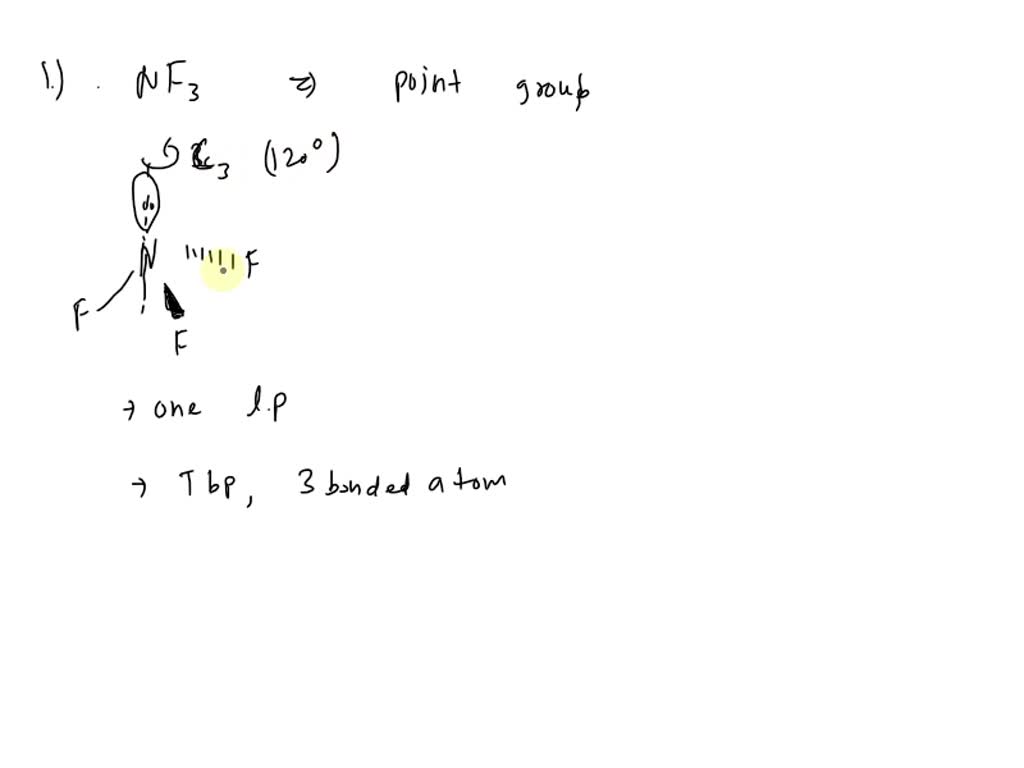 1.) . NF3 => point group
C3 (120°)
N F
F
F
→ one l.p
→ Tbp, 3 bonded atom